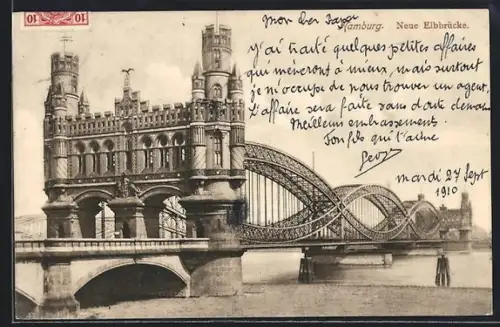 10 10
Mon cher Papa
Hamburg. Neue Elbbrücke.
J'ai traité quelques petites affaires
qui mèneront à mieux, mais surtout
je m'occupe de nous trouver un agent,
L'affaire sera faite sans doute demain
Meilleur embrassement.
Ton fils qui t'aime
Mardi 27 Sept
1910